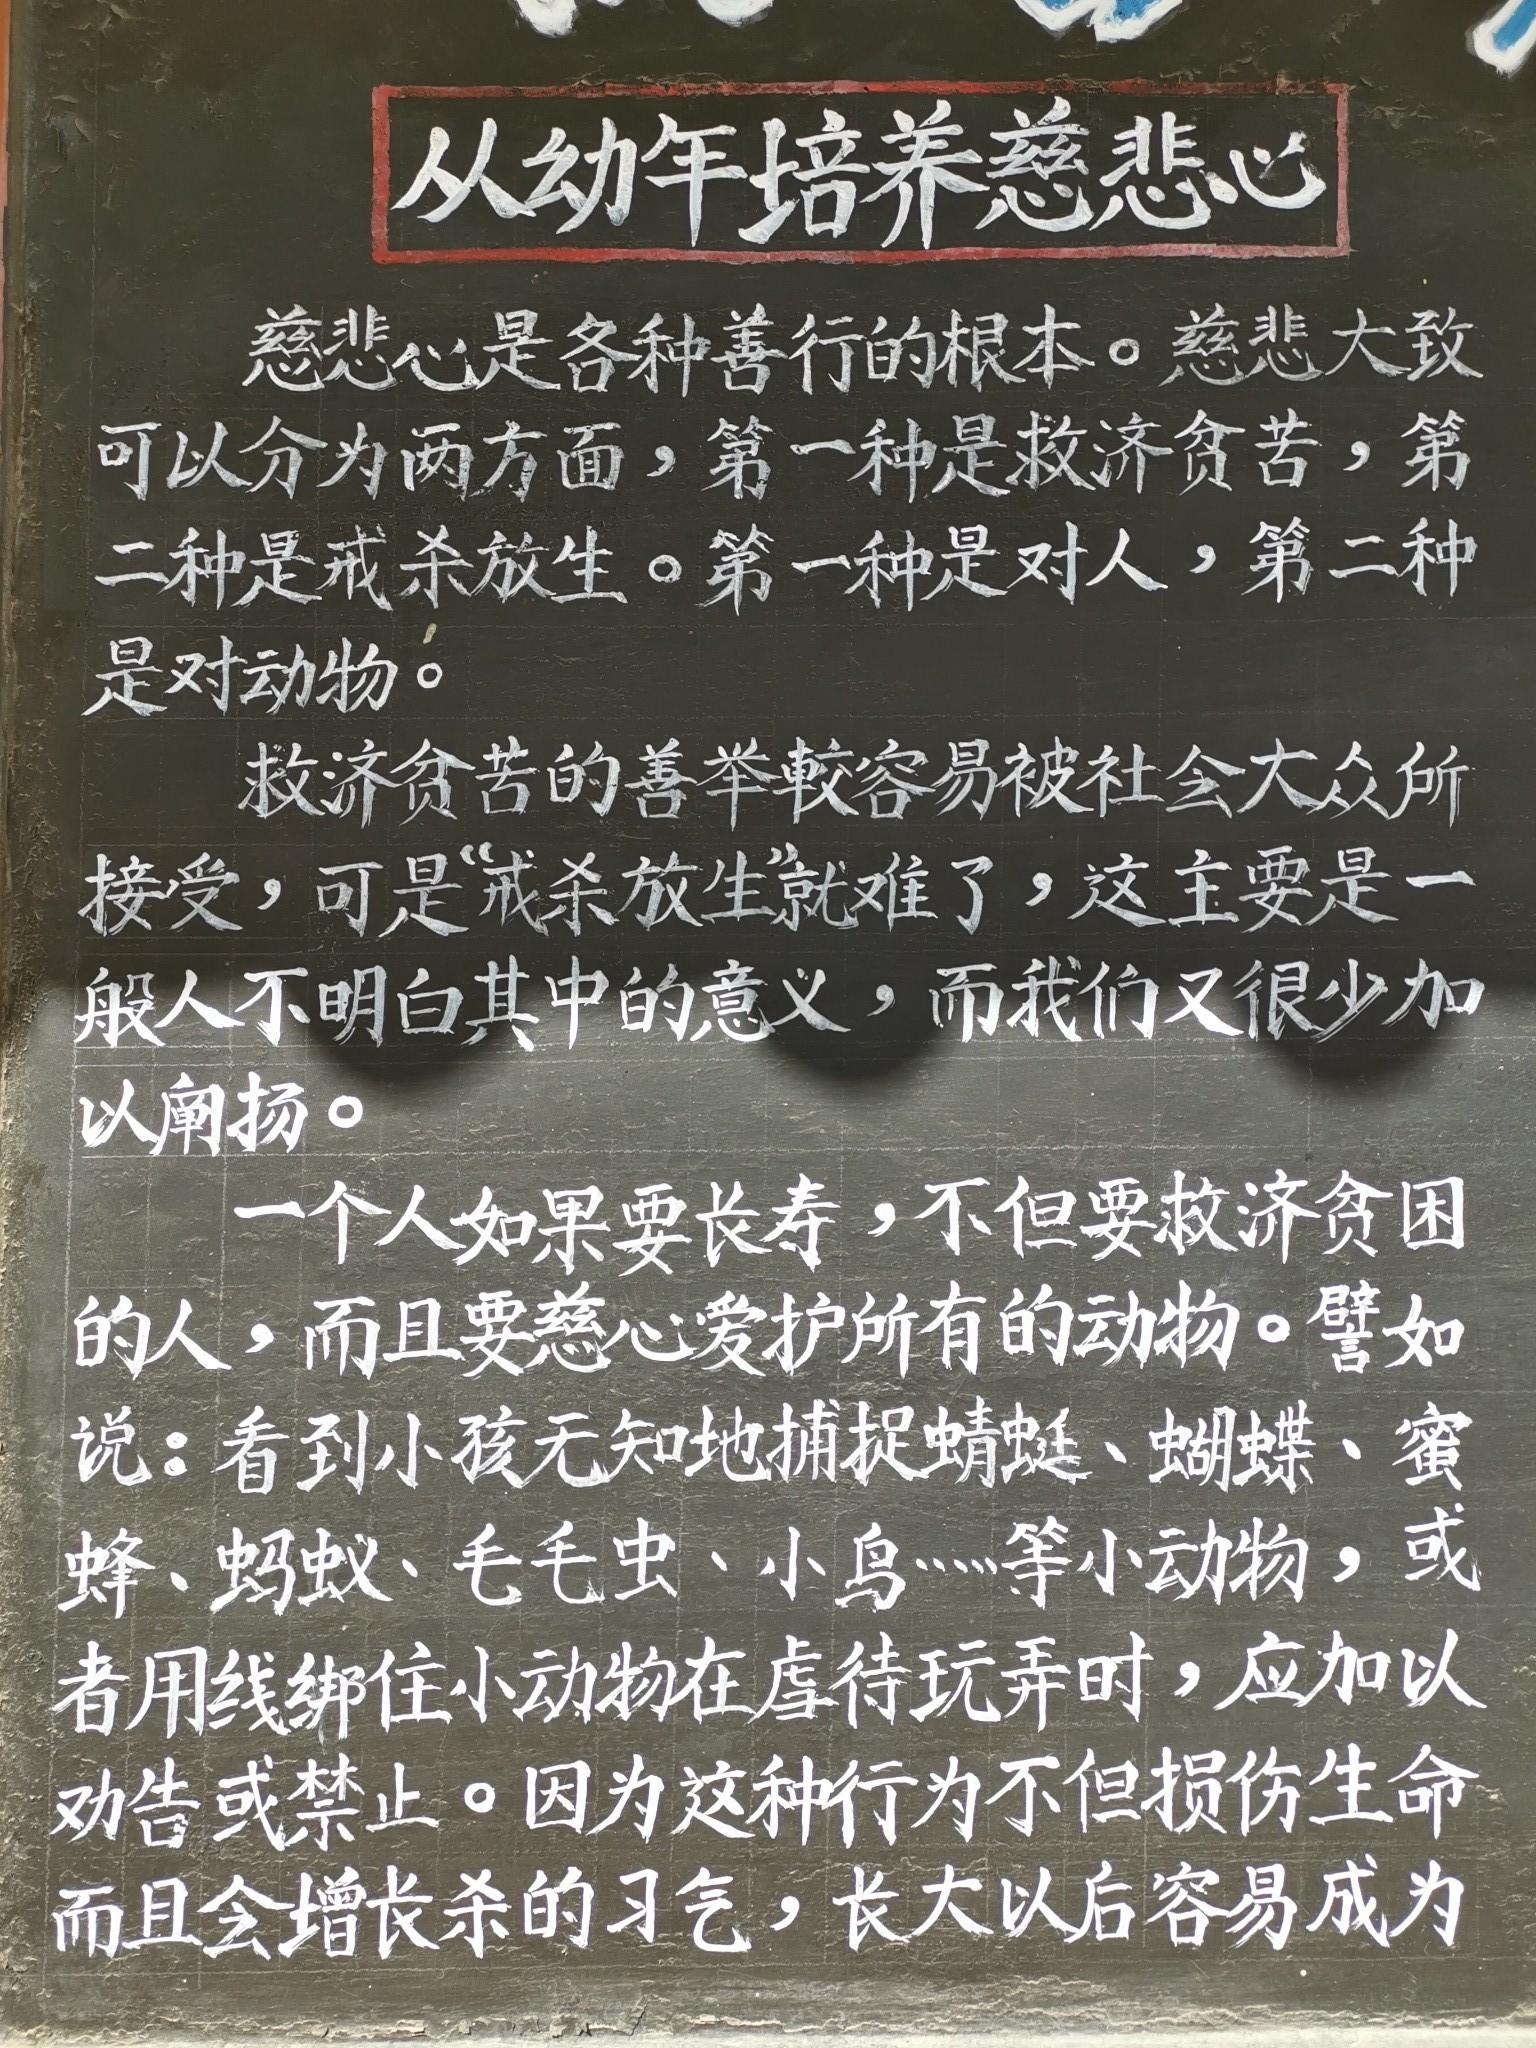 从幼年培养慈悲心
慈悲心是各种善行的根本。慈悲大致
可以分为两方面，第一种是救济贫苦，第
二种是戒杀放生。第一种是对人，第二种
是对动物。
救济贫苦的善举較容易被社会大众所
接受，可是“戒杀放生”就难了，这主要是一
般人不明白其中的意义，而我们又很少加
以阐扬。
一个人如果要长寿，不但要救济贫困
的人，而且要慈心爱护所有的动物。譬如
说：看到小孩无知地捕捉蜻蜓、蝴蝶、蜜
蜂、蚂蚁、毛毛虫、小鸟……等小动物，或
者用线绑住小动物在虐待玩弄时，应加以
劝告或禁止。因为这种行为不但损伤生命
而且会增长杀的习气，长大以后容易成为